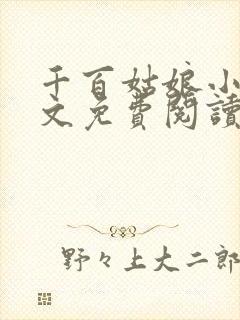 千百姑娘小
文免費閱讀
野々上大二郎